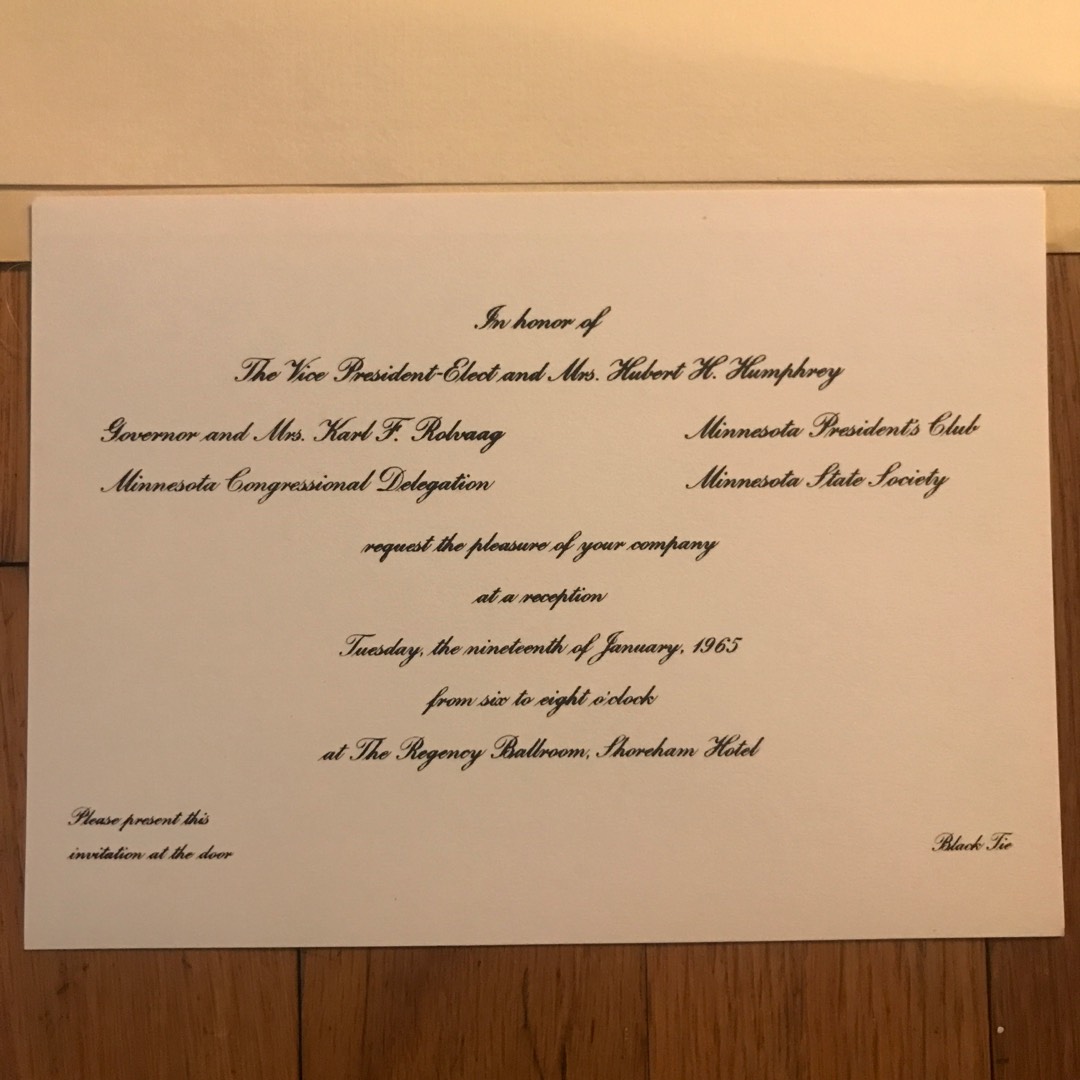 In honor of
The Vice President-Elect and Mrs. Hubert H. Humphrey
Governor and Mrs. Karl F. Rolvaag
Minnesota Congressional Delegation
Minnesota President's Club
Minnesota State Society
request the pleasure of your company
at a reception
Tuesday, the nineteenth of January, 1965
from six to eight o'clock
at The Regency Ballroom, Shoreham Hotel
Please present this
invitation at the door
Black Tie